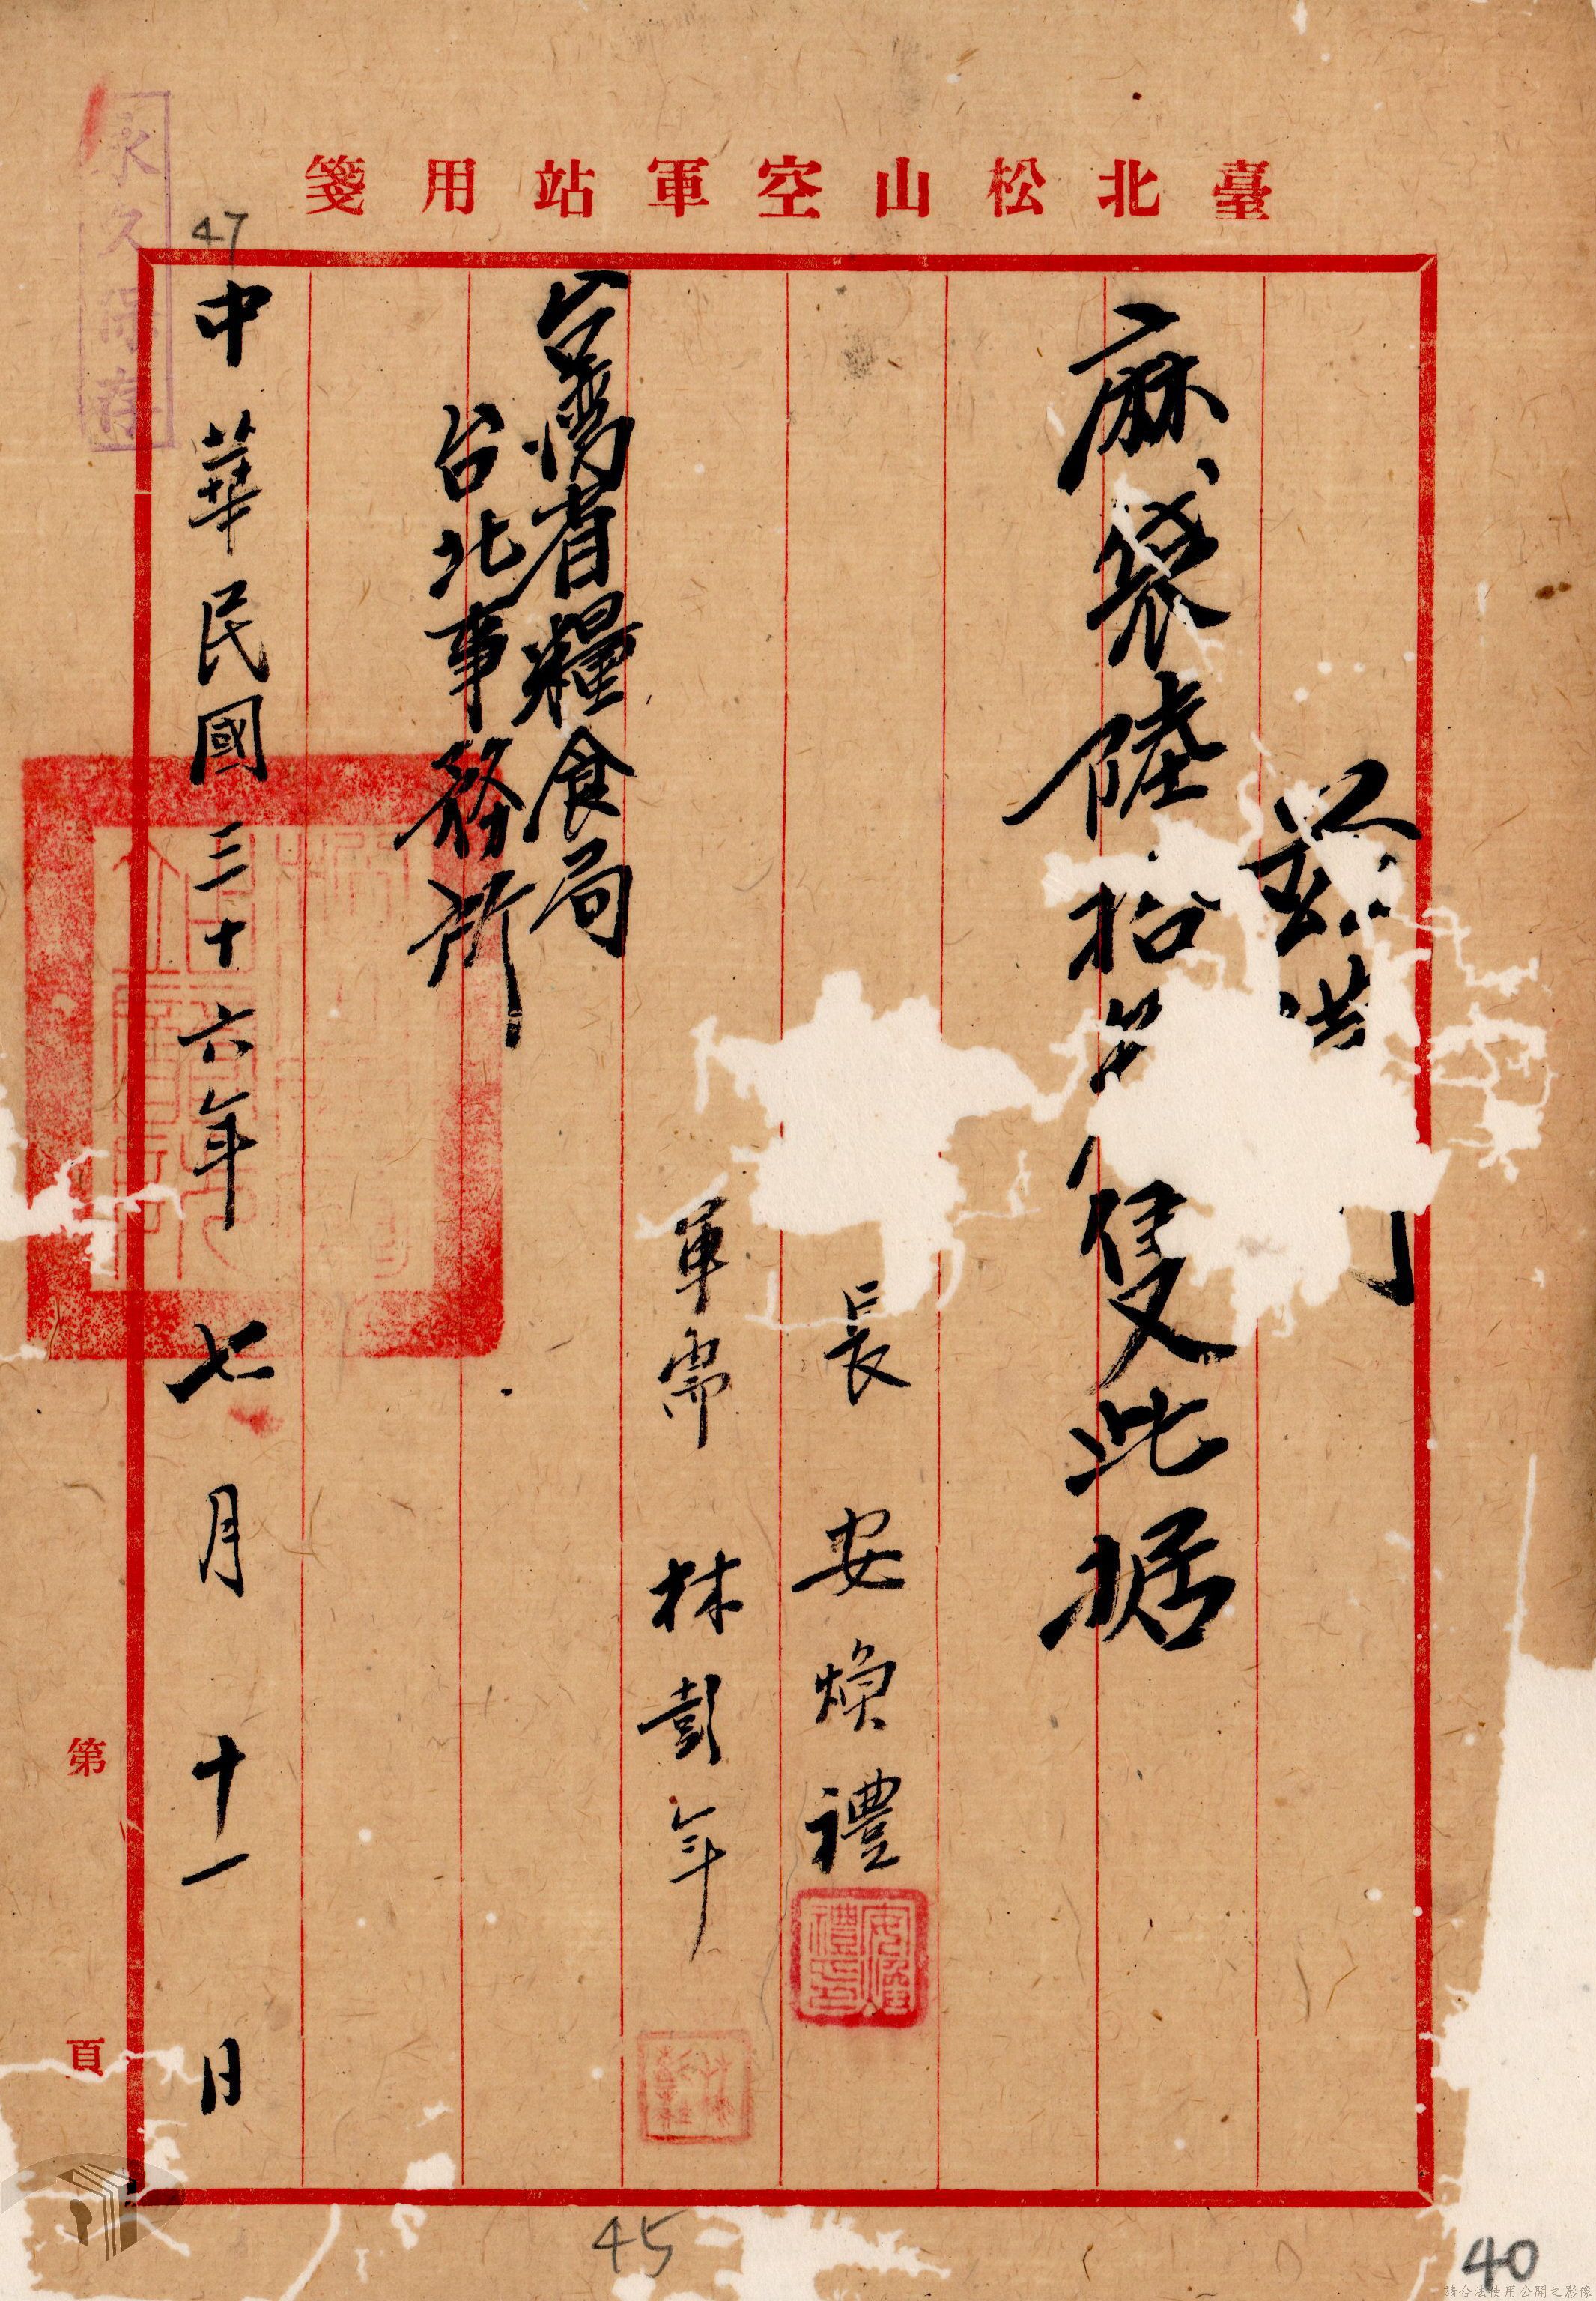 臺北松山空軍站用箋
茲
麻袋陸拾 隻此據
長 安煥禮
軍需 林彭年
台灣省糧食局
台北事務所
中華民國三十六年七月十一日
永久保存
第 頁
47
45
40
請合法使用公開之影像